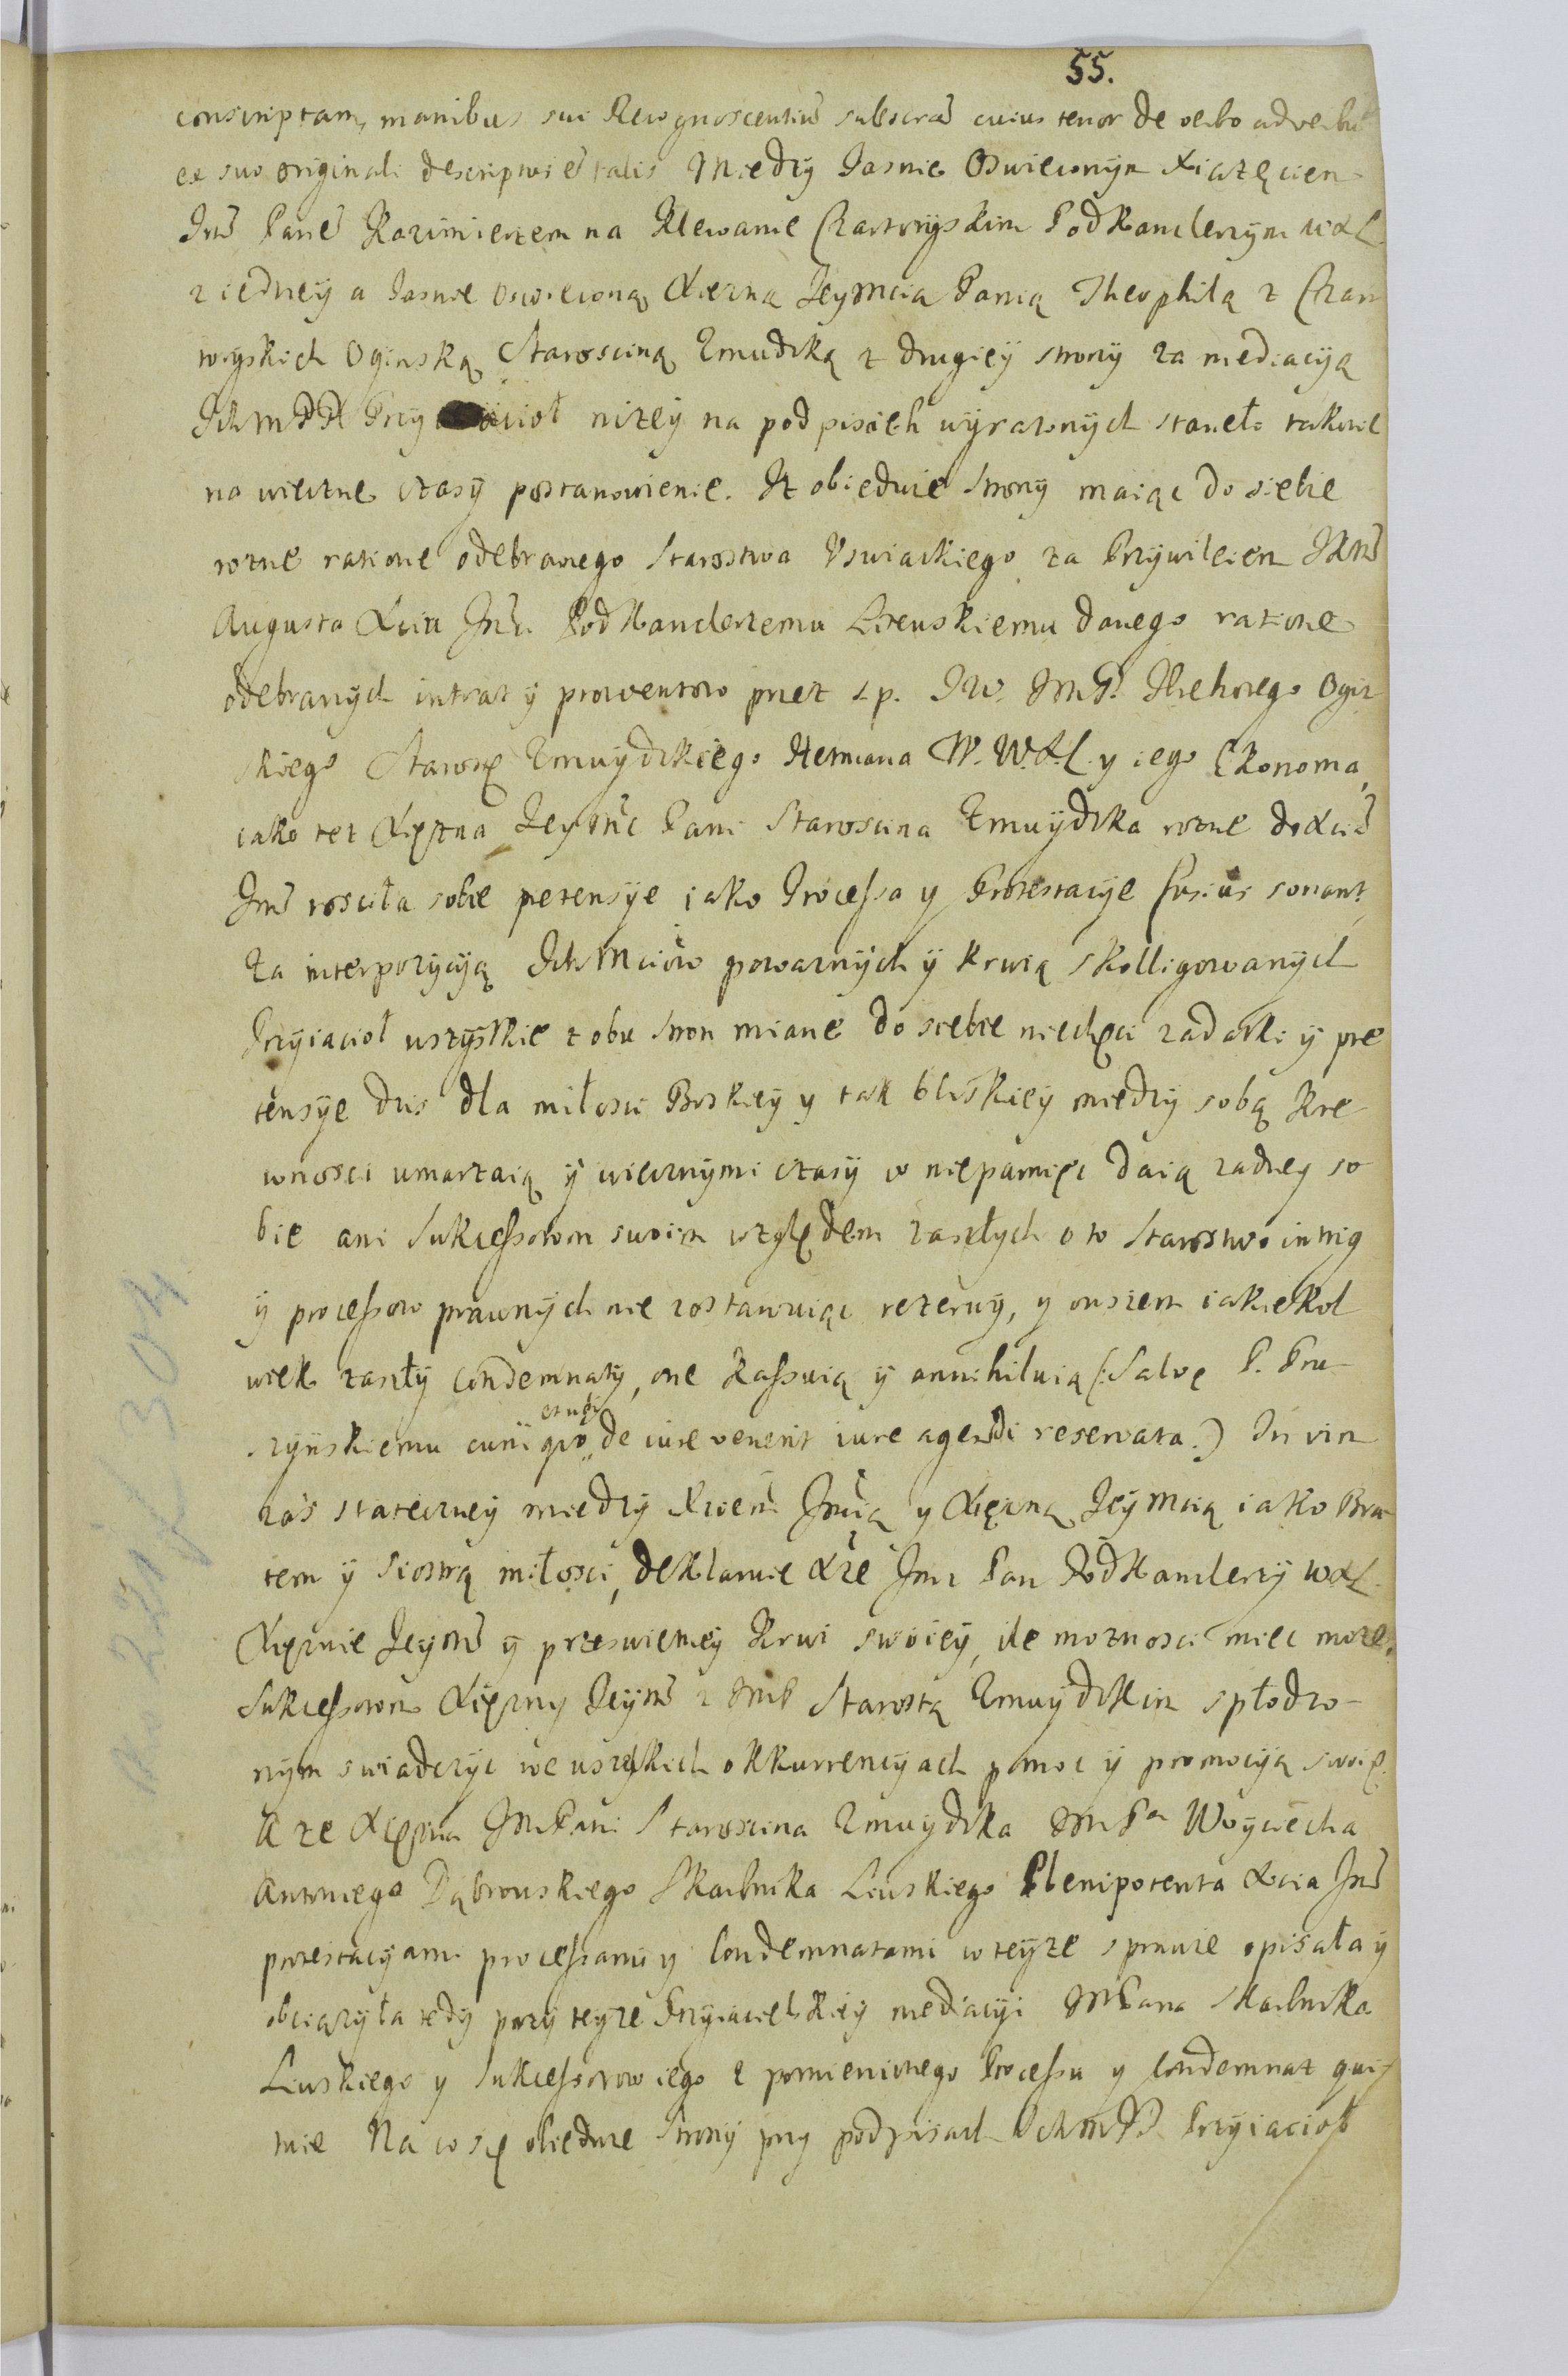 55.
conscriptam, manibus sui Recognoscentiũ subscrã cuius tenor de verbo ad verbũ
ex suo originali descriptus ẽ talis Między Jasnie Oswieconym Xiązęciem
Jmẽ Panẽ Kazimierzem na Klewanie Czartoryskim Podkanclerzym WXL
z iedney a Jasnie oswieconą Xiezną Jeymcią Panią Theophilą z Czar
toryskich Oginską Starosciną Zmudzką z drugiey strony za mediacyą
Ichm PP Przyiacioł nizey na podpisach wyrazonych staneło takowe
na wieczne czasy postanowienie. Iz obiedwie strony maiąc do siebie
rozne ratione odebranego Starostwa Uswiackiego za Przywileiem JKmẽ
Augusta Xciu Jmci Podkanclerzemu Litewskiemu danego ratione
odebranych intrat y prowentow przez s.p. JW. JmP. Hrehorego Ogiń
skiego Starosty Zmuydzkiego Hetmana W. W.X.L. y iego Ekonoma,
iako tez Xięzna Jeymc Pani Starościna Zmuydzka rozne do Xcia
Jmẽ rosciła sobie pretensye iako Processa y Protestacye fusius sonant,
Za interpozycyą IchMciow powaznych y krwią skolligowanych
Przyiacioł wszystkie z obu stron miane do siebie niechęci zadatki y pre
tensye dzis dla miłosci Boskiey y tak bliskiey między sobą Kre
wnosci umarzaią y wiecznymi czasy w niepamięc daią zadney so
bie ani Sukcessorom swoim względem zaszłych o to Starostwo intryg
y processow prawnych nie zostawuiąc rezerwy, y owszem iakiekol
wiek zaszły condemnaty, one kassuią y annihiluią (: Salvę P. Pru
szynskiemu cum quo et ubi de iure venerit iure agendi reservata.) In vim
zas stateczney między Xciem Jmcią y Xięzną Jeymcią iako Bra
tem y siostrą miłosci, deklaruie Xże Jmc Pan Podkanclerzy WXL
Xięznie Jeymẽ y przeswietney Krwi swoiey, ile moznosci miec moze.
Sukcessorom Xięzny Jeymẽ z JmP Starostą Zmuydzkim spłodzo-
nym swiadczyc we wszelkich okkurrencyach pomoc y promocyą swoię.
A ze Xięzna JmPani Starościna Zmuydzka JmPa Woyciecha
Antoniego Dąbrowskiego Skarbnika Liwskiego Plenipotenta Xcia Jmẽ
protestacyami processami y Condemnatami w teyze sprawie opisała y
obciązyła tedy przy teyze Przyiacielskiey mediacyi JmPana Skarbnika
Liwskiego y Sukcessorow iego z pomienionego Processu y Condemnat qui
tuie Na co się obiedwie strony przy podpisach IchmPP. Przyiacioł